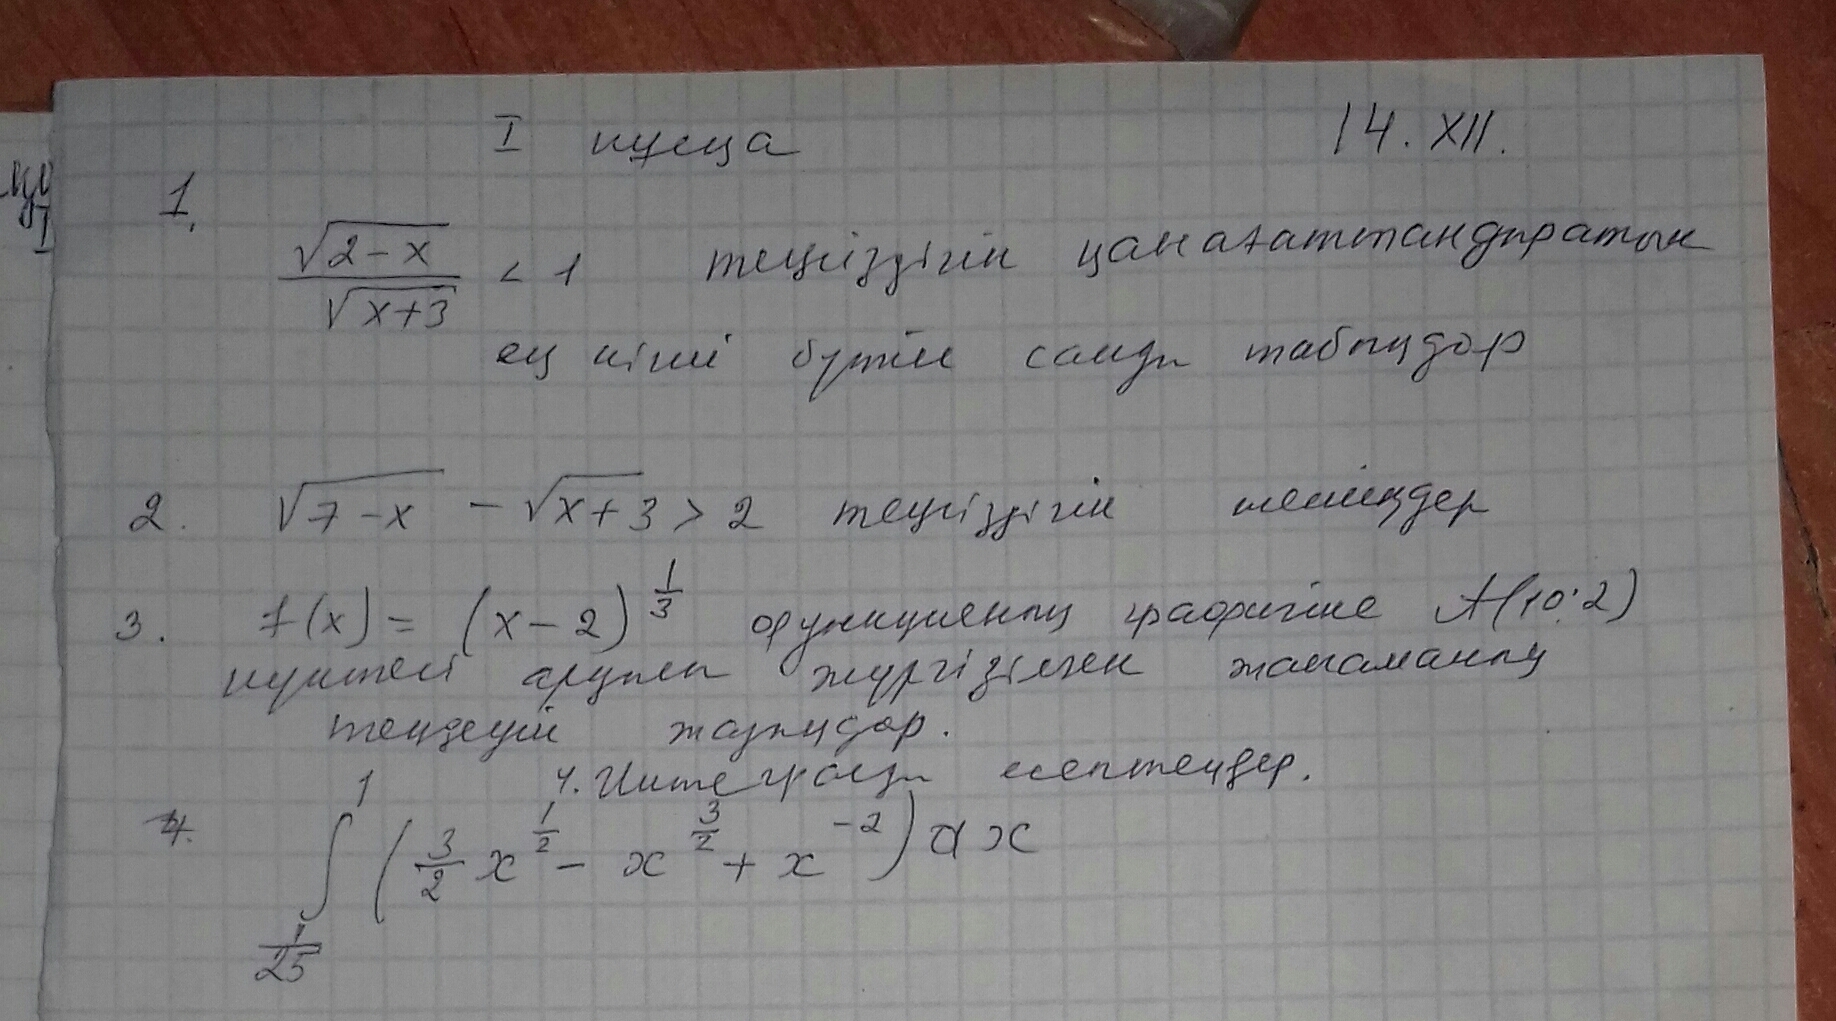 I нұсқа 14.XII.
1.
√(2-x)/√(x+3) < 1 теңсіздігін қанағаттандыратын
ең кіші бүтін санды табыңдар
2. √(7-x) - √(x+3) > 2 теңсіздігін шешіңдер
3. f(x) = (x-2)^(1/3) функцияның графигіне A(10;2)
нүктесі арқылы жүргізілген жанаманың
теңдеуін жазыңдар.
4. Интегралды есептеңдер.
∫_(1/25)^1 (3/2 x^(1/2) - x^(3/2) + x^(-2)) dx